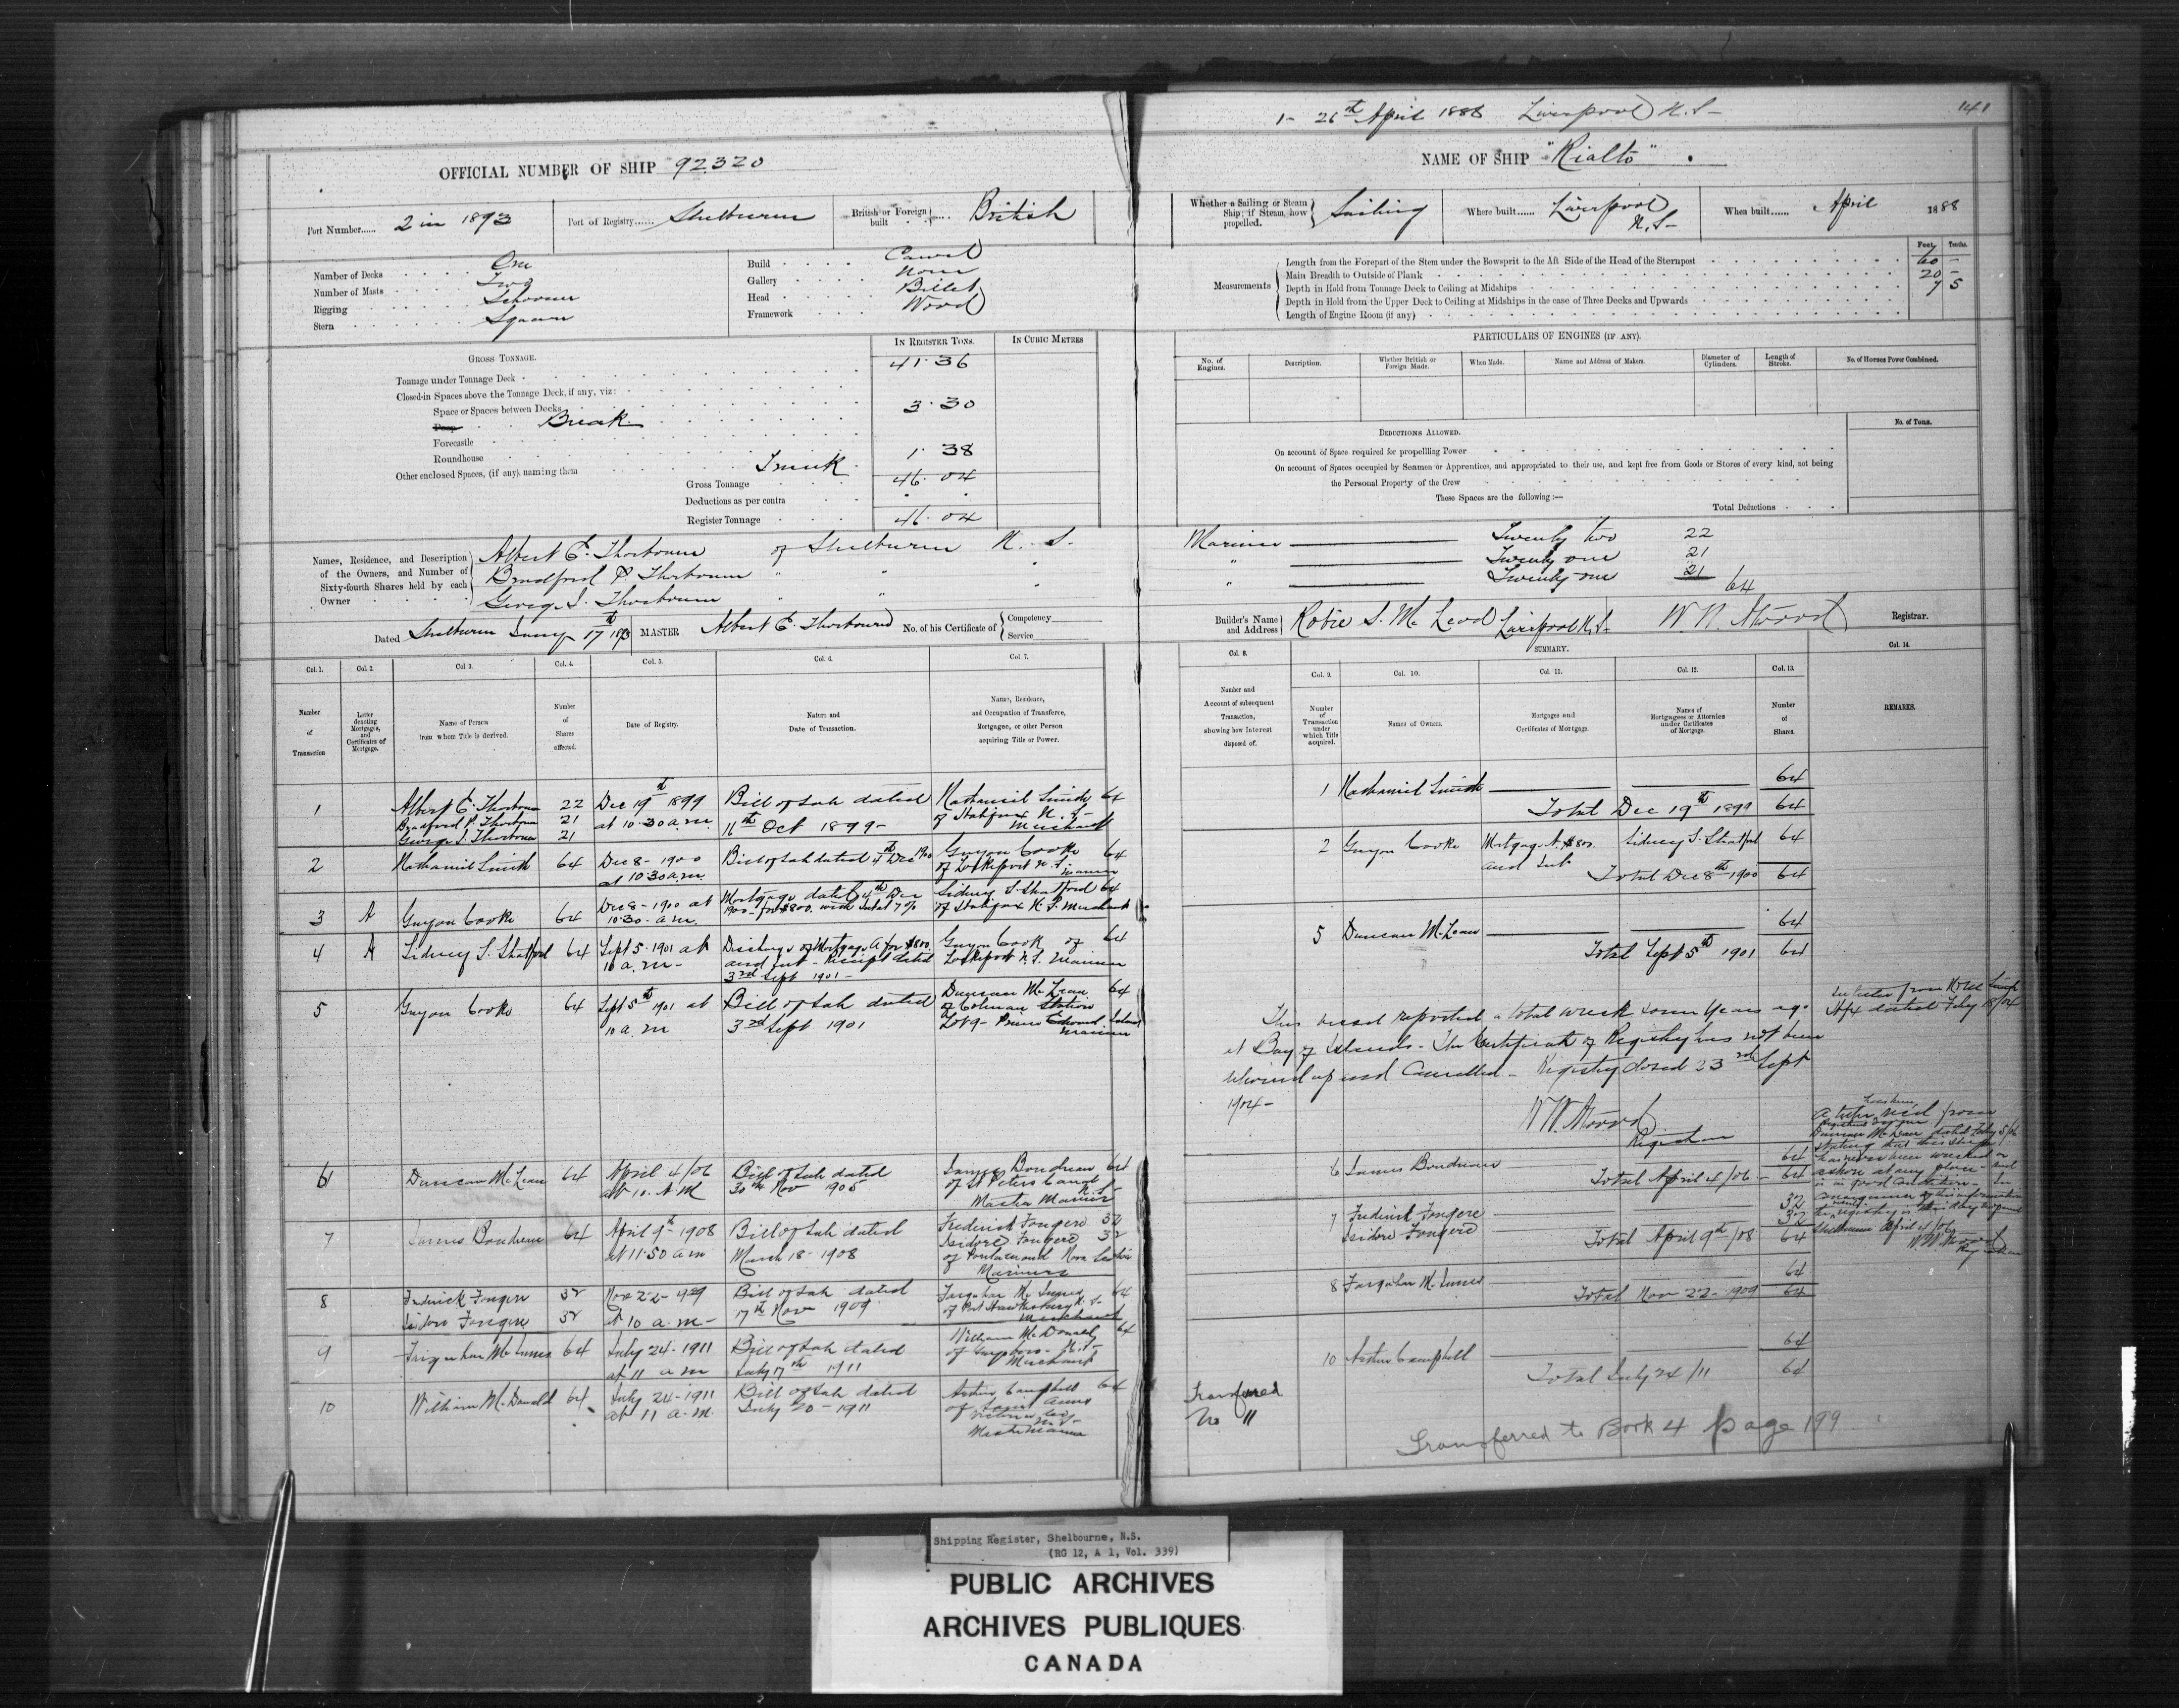 1- 26th April 1888 Liverpool N.S-
141
OFFICIAL NUMBER OF SHIP 92320
NAME OF SHIP "Rialto"
Port Number...... 2 in 1893
Port of Registry...... Shelburne
British or Foreign built British
Whether a Sailing or Steam Ship; if Steam, how propelled. Sailing
Where built...... Liverpool N.S-
When built...... April 1888
Number of Decks One
Number of Masts Two
Rigging Schooner
Stern Square
Build Carvel
Gallery None
Head Billet
Framework Wood
Measurements
Feet. Tenths.
Length from the Forepart of the Stem under the Bowsprit to the Aft Side of the Head of the Sternpost 60 -
Main Breadth to Outside of Plank 20 -
Depth in Hold from Tonnage Deck to Ceiling at Midships 7 5
Depth in Hold from the Upper Deck to Ceiling at Midships in the case of Three Decks and Upwards
Length of Engine Room (if any)
GROSS TONNAGE.
IN REGISTER TONS.
IN CUBIC METRES
Tonnage under Tonnage Deck 41.36
Closed-in Spaces above the Tonnage Deck, if any, viz:
Space or Spaces between Decks
Poop Break 3.30
Forecastle
Roundhouse
Other enclosed Spaces, (if any), naming them Trunk 1.38
Gross Tonnage 46.04
Deductions as per contra
Register Tonnage 46.04
PARTICULARS OF ENGINES (IF ANY).
No. of Engines.
Description.
Whether British or Foreign Made.
When Made.
Name and Address of Makers.
Diameter of Cylinders.
Length of Stroke.
No. of Horses Power Combined.
DEDUCTIONS ALLOWED.
No. of Tons.
On account of Space required for propelling Power
On account of Spaces occupied by Seamen or Apprentices, and appropriated to their use, and kept free from Goods or Stores of every kind, not being
the Personal Property of the Crew
These Spaces are the following:—
Total Deductions
Names, Residence, and Description of the Owners, and Number of Sixty-fourth Shares held by each Owner
Albert E. Thorbourn of Shelburne N. S. Mariner Twenty two 22
Bradford P Thorbourn " " " " Twenty one 21
George S. Thorbourn " " " " Twenty one 21
64
Dated Shelburne 17th 1893
MASTER Albert E. Thorbourn
No. of his Certificate of Competency Service
Builder's Name and Address Robie S. McLeod Liverpool N.S-
W. W. Atwood Registrar.
Col. 1. Number of Transaction
Col. 2. Letter denoting Mortgages, and Certificates of Mortgage.
Col 3. Name of Person from whom Title is derived.
Col. 4. Number of Shares affected.
Col. 5. Date of Registry.
Col. 6. Nature and Date of Transaction.
Col 7. Name, Residence, and Occupation of Transferee, Mortgagee, or other Person acquiring Title or Power.
Col. 8. Number and Account of subsequent Transaction, showing how Interest disposed of.
SUMMARY.
Col. 9. Number of Transaction under which Title acquired.
Col. 10. Names of Owners.
Col. 11. Mortgages and Certificates of Mortgage.
Col. 12. Names of Mortgagees or Attornies under Certificates of Mortgage.
Col. 13. Number of Shares.
Col. 14. REMARKS.
1 Albert E. Thorbourn 22 Dec 19th 1899 Bill of Sale dated Nathaniel Smith 64
Bradford P. Thorbourn 21 at 10.30 a.m. 16th Oct 1899- of Halifax N.S-
George S. Thorbourn 21 Merchant
2 Nathaniel Smith 64 Dec 8- 1900 Bill of Sale dated 4th Dec 1900 Guyon Cooke 64
at 10.30 a.m. of Lockeport N.S. Mariner
3 A Guyon Cooke 64 Dec 8- 1900 at Mortgage dated 4th Dec Sidney S. Shatford 64
10.30. a.m. 1900- for $800. with Intst 7% of Halifax N.S. Merchant
4 A Sidney S. Shatford 64 Sept 5- 1901 at Discharge of Mortgage A for $800. Guyon Cook of 64
10 a.m- and Int- Receipt dated Lockeport N.S. Mariner
3rd Sept 1901-
5 Guyon Cooke 64 Sept 5th 1901 at Bill of Sale dated Duncan McLean 64
10 a.m 3rd Sept 1901 of Coleman Station
Lot 9- Prince Edward Island Mariner
6 Duncan McLean 64 April 4/06 Bill of Sale dated James Boudreau 64
at 10. A.M 30th Nov 1905 of St Peters Canal N.S-
Master Mariner
7 James Boudreau 64 April 9th- 1908 Bill of Sale dated Frederick Fougere 32
at 11.50 am March 18- 1908 Isidore Fougere 32
of Poulamond Nova Scotia
Mariners
8 Frederick Fougere 32 Nov 22- 1909 Bill of Sale dated Farquhar McInnes 64
Isidore Fougere 32 at 10 a.m- 17th Nov 1909 of Port Hawkesbury N.S-
Merchant
9 Farquhar McInnes 64 July 24- 1911 Bill of Sale dated William McDonald 64
at 11 a m July 17th 1911 of Guysboro- N.S-
Merchant
10 William McDonald 64 July 24-1911 Bill of Sale dated Arthur Campbell 64
at 11 a.m. July 20- 1911 of
Victoria Co
Master Mariner
1 Nathaniel Smith 64
Total Dec 19th 1899 64
2 Guyon Cooke Mortgage A. $800. Sidney S. Shatford 64
and Int-
Total Dec 8th 1900 64
5 Duncan McLean 64
Total Sept 5th 1901 64
This vessel reported a total wreck some years ago
at Bay of Islands- The Certificate of Registry has not been
delivered up and Cancelled- Registry closed 23rd Sept
1904-
W W. Atwood
Registrar
See letter from
Hfx dated July 18/04
A letter rec'd from
Duncan McLean dated 5/06
stating that this Ship
has never been wrecked or
ashore at any place- and
is in good Condition- In
consequence of this information
the registry is this day reopened
Shelburne April 4/06
W W. Atwood
Registrar
6 James Boudreau 64
Total April 4/06- 64
7 Frederick Fougere 32
Isidore Fougere 32
Total April 9th/08 64
8 Farquhar McInnes 64
Total Nov 22- 1909 64
10 Arthur Campbell 64
Total July 24/11 64
Transferred
No 11
Transferred to Book 4 page 199
Shipping Register, Shelbourne, N.S.
(RG 12, A 1, Vol. 339)
PUBLIC ARCHIVES
ARCHIVES PUBLIQUES
CANADA